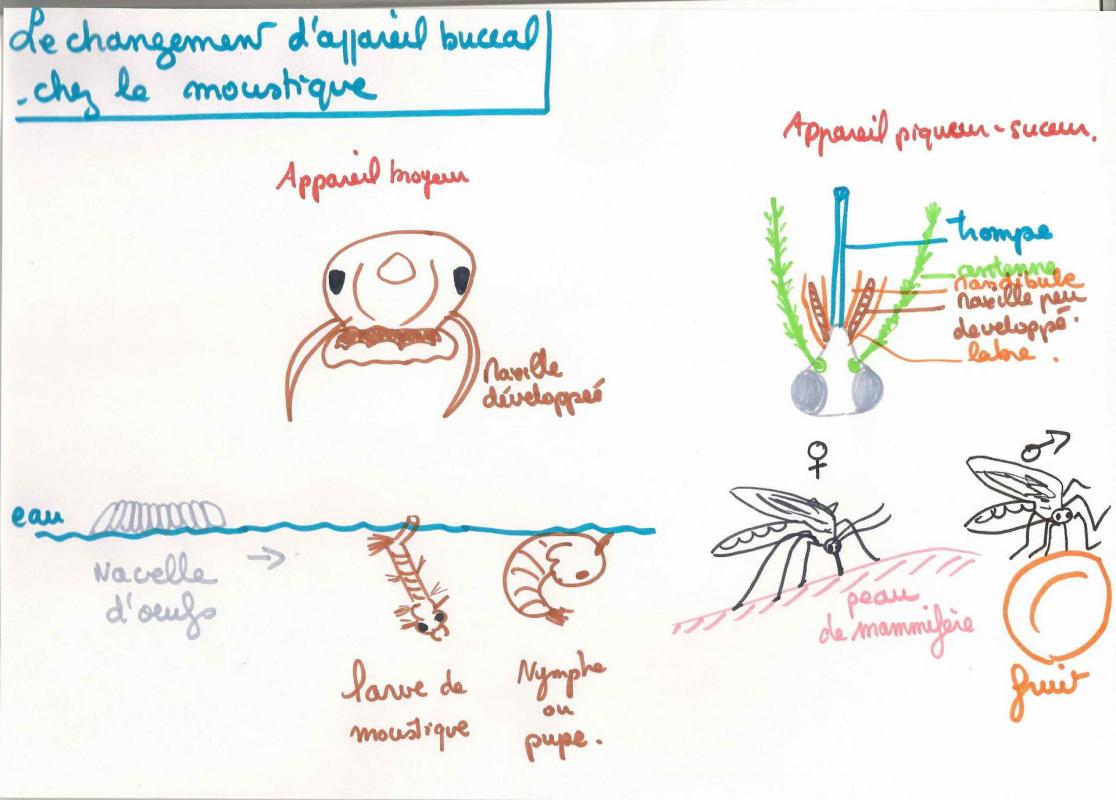 Le changement d'appareil buccal
chez le moustique
Appareil broyeur
Maxille
développeé
Appareil piqueur-suceur.
trompe
antenne
mandibule
maxille peu
developpé.
labre.
eau
Nacelle
d'oeufs
larve de
moustique
Nymphe
ou
pupe.
♀
♂
peau
de mammifère
fruit